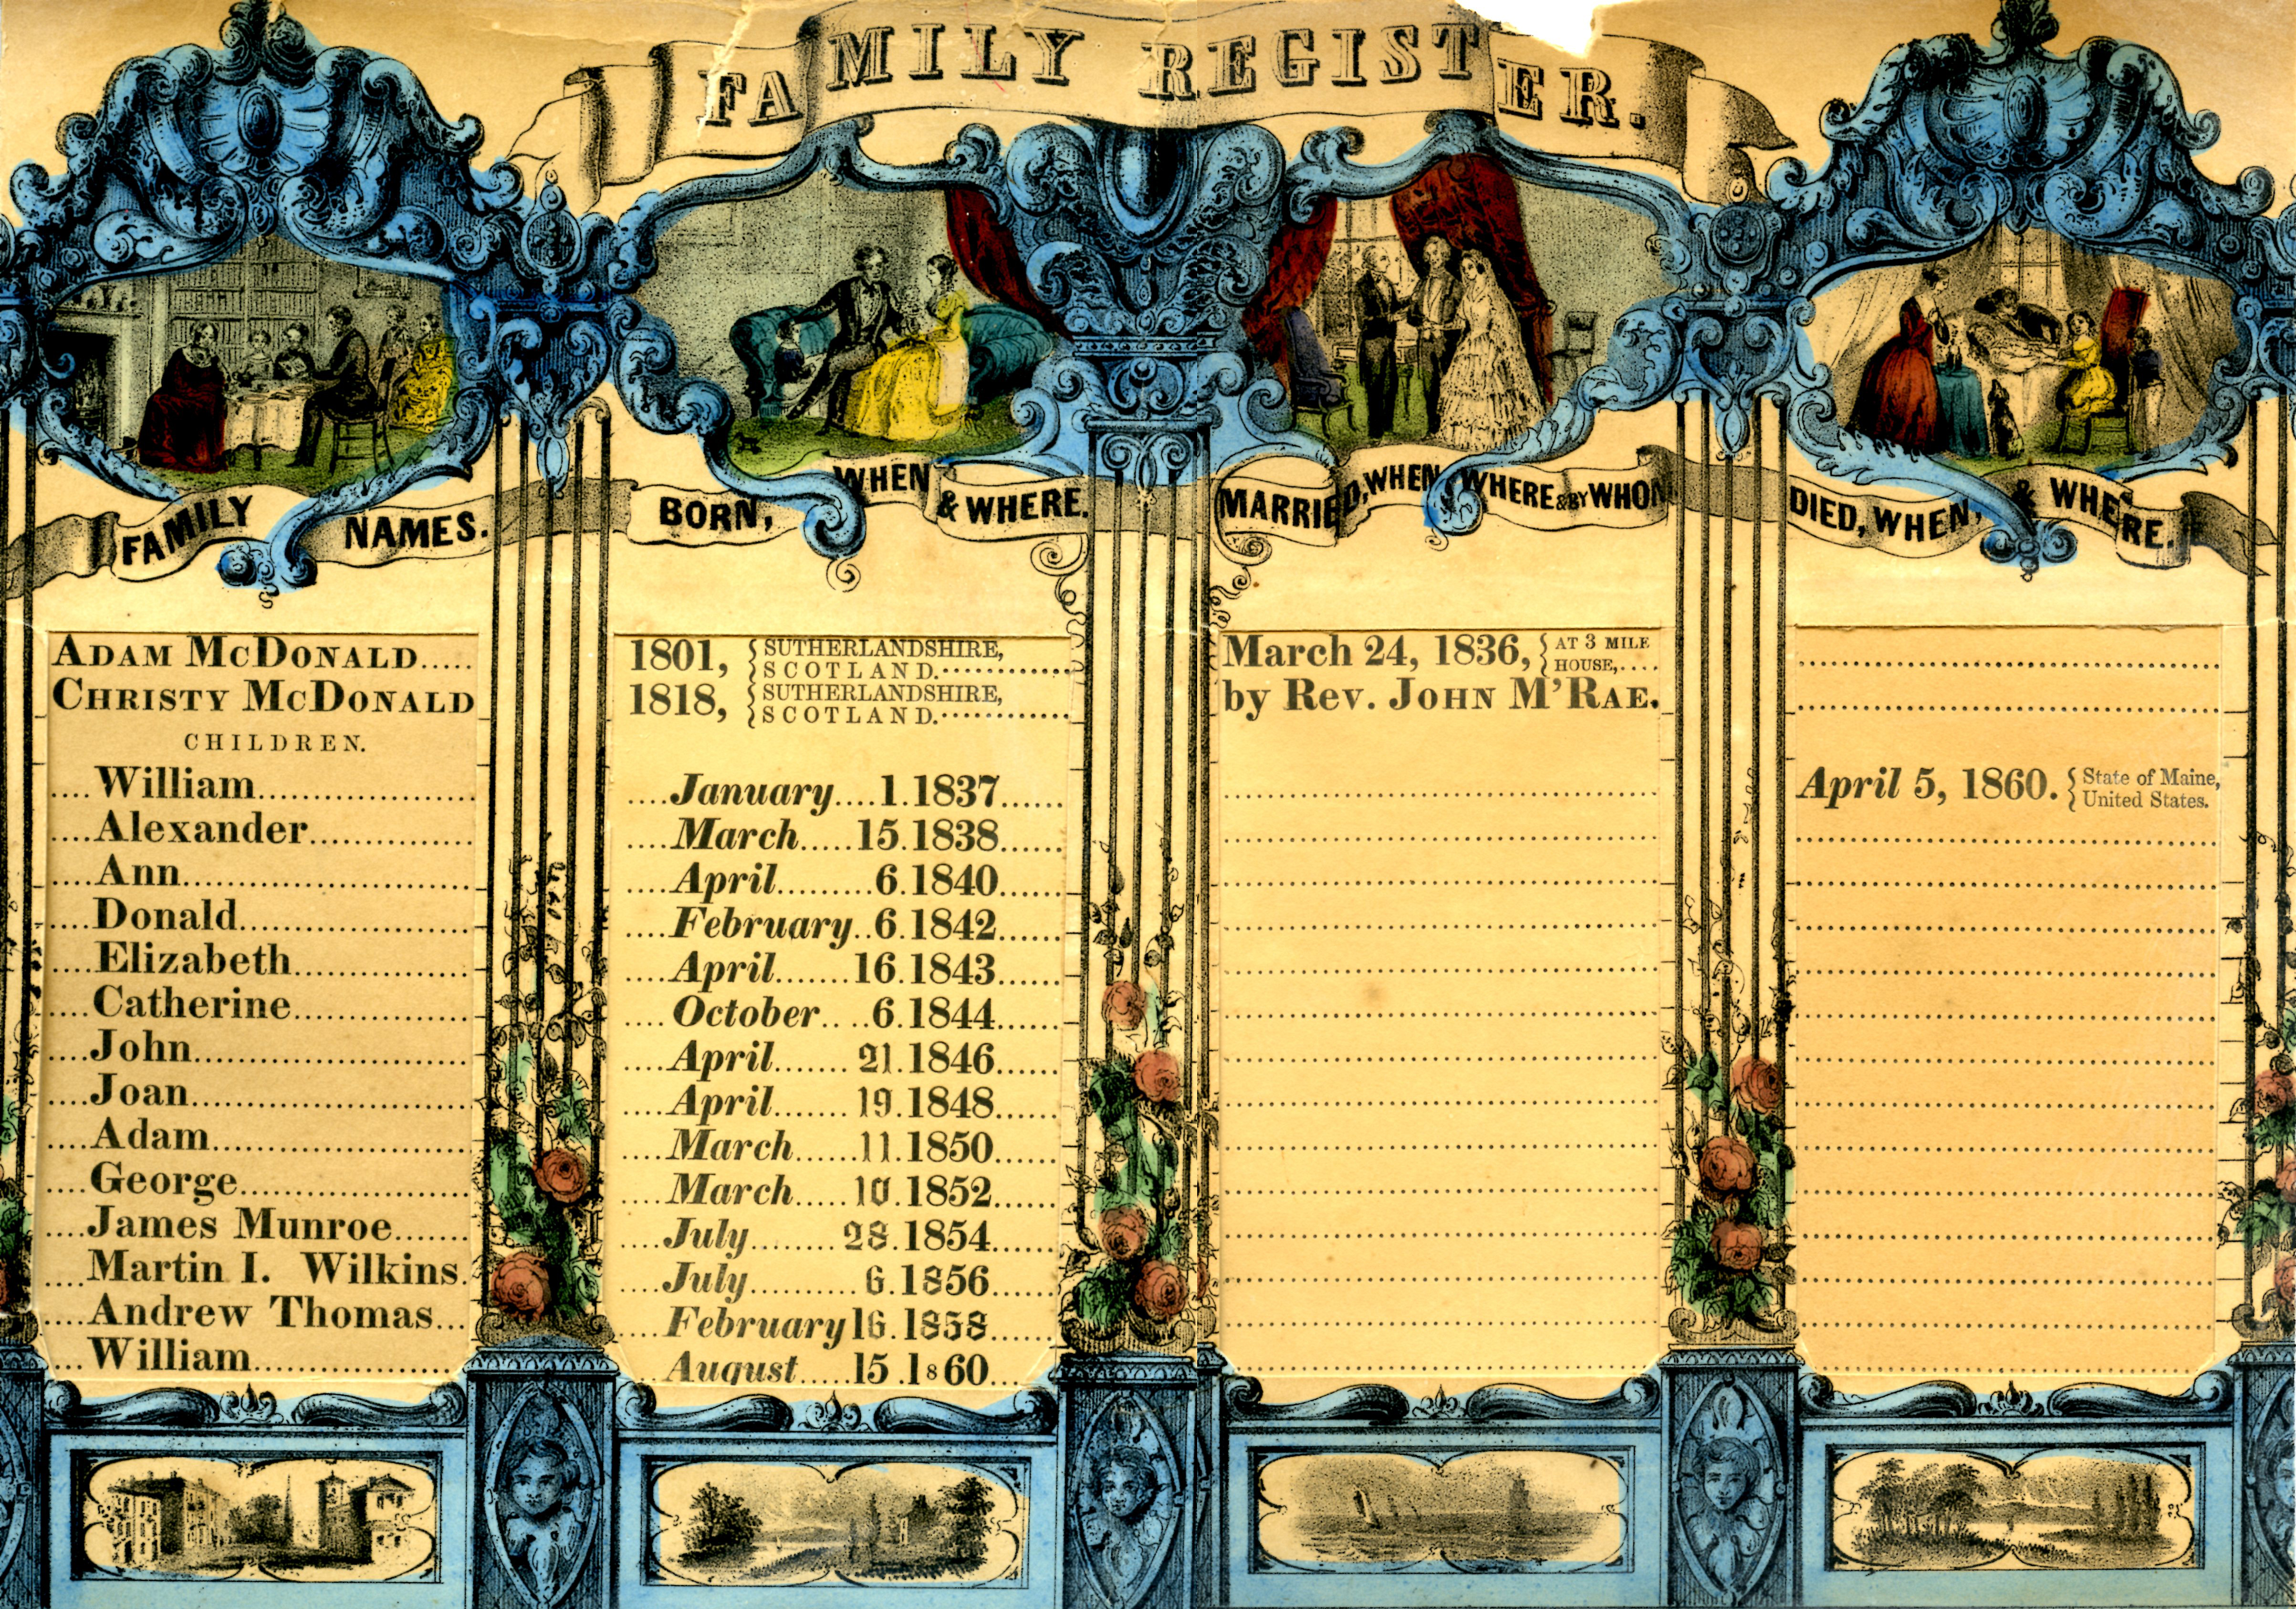 FAMILY REGISTER.
FAMILY NAMES.
BORN, WHEN & WHERE.
MARRIED, WHEN, WHERE & BY WHOM
DIED, WHEN, & WHERE.
ADAM MCDONALD..... 1801, { SUTHERLANDSHIRE, SCOTLAND. March 24, 1836, { AT 3 MILE HOUSE,....
CHRISTY MCDONALD 1818, { SUTHERLANDSHIRE, SCOTLAND. by Rev. JOHN M'RAE.
CHILDREN.
William January 1.1837 April 5, 1860. { State of Maine, United States.
Alexander March 15.1838
Ann April 6.1840
Donald February 6.1842
Elizabeth April 16.1843
Catherine October 6.1844
John April 21.1846
Joan April 19.1848
Adam March 11.1850
George March 10.1852
James Munroe July 28.1854
Martin I. Wilkins. July 6.1856
Andrew Thomas February 16.1858
William August 15.1860